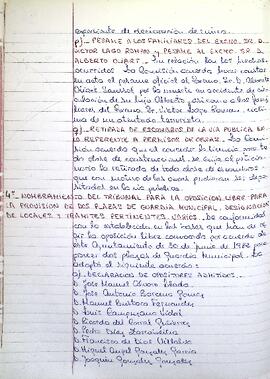 expediente de declaración de ruina.
p) - PESAME A LOS FAMILIARES DEL EXCMO. SR. D.
VICTOR LAGO ROMAN Y PESAME AL EXCMO. SR. D.
ALBERTO OLIART. - En relación con los hechos
ocurridos La Comisión acuerda hacer constar
en acta el pésame oficial al Excmo. Sr. D. Alberto
Oliart Saussol por la muerte en accidente de cir-
culación de su hijo Alberto, así como a los fami-
liares del Excmo. Sr. Victor Lago Roman, victi-
ma de un atentado terrorista.
q) - RETIRADA DE ESCOMBROS DE LA VIA PUBLICA EN
LO REFERENTE A PERMISOS DE OBRAS. - La Comi-
sión acuerda que al conceder la licencia para to-
da clase de construcciones, se exija al peticio-
nario la retirada de toda clase de escombros
que con motivo de las obras pudieran ser depo-
sitados en la vía pública.
4º - NOMBRAMIENTO DEL TRIBUNAL PARA LA OPOSICION LIBRE PARA
LA PROVISION DE DOS PLAZAS DE GUARDIA MUNICIPAL, DESIGNACION
DE LOCALES Y TRAMITES PERTINENTES VARIOS. - De conformidad
con lo establecido en las bases que han de re-
gir la oposición libre convocada por acuerdo de
este Ayuntamiento de 30 de Junio de 1982 para
proveer dos plazas de Guardia Municipal. Se
adoptó el siguiente acuerdo:
a) DECLARACION DE OPOSITORES ADMITIDOS. -
D. José Manuel
D. José Antonio
D. Manuel Bustos Fernandez
D. Luis Campuzano Vidal
D. Ricardo del Corral Gutierrez
D. Pedro Diaz
D. Francisco de Dios Villalva
D. Miguel Angel Gonzalez Garcia
D. Joaquin Gonzalez Gonzalez